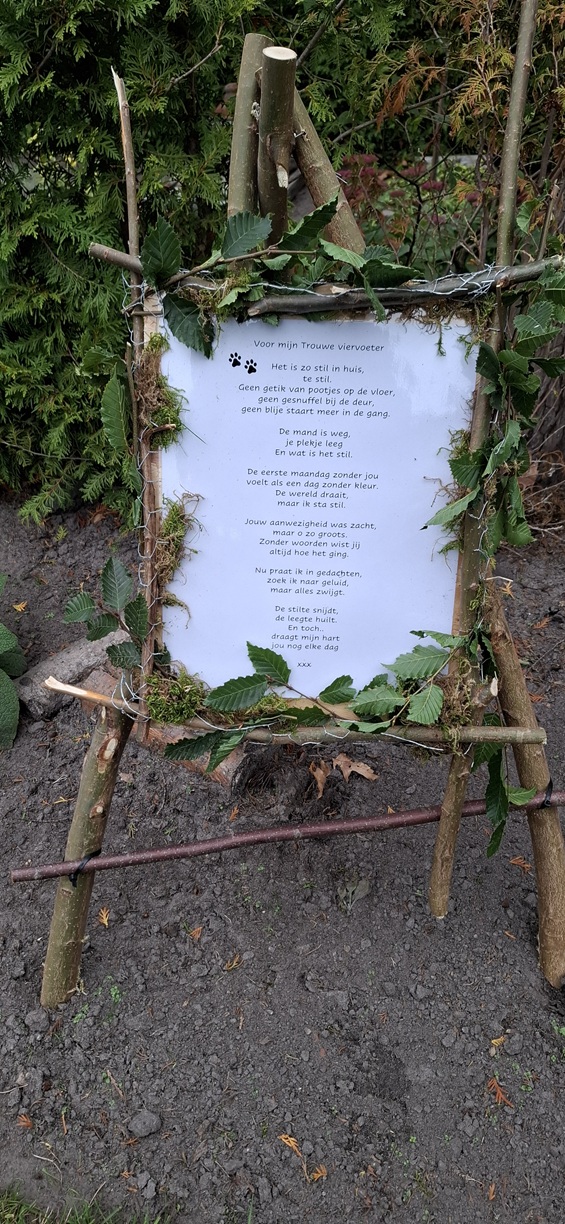 Voor mijn Trouwe viervoeter
Het is zo stil in huis,
te stil.
Geen getik van pootjes op de vloer,
geen gesnuffel bij de deur,
geen blije staart meer in de gang.
De mand is weg,
je plekje leeg
En wat is het stil.
De eerste maandag zonder jou
voelt als een dag zonder kleur.
De wereld draait,
maar ik sta stil.
Jouw aanwezigheid was zacht,
maar o zo groots.
Zonder woorden wist jij
altijd hoe het ging.
Nu praat ik in gedachten,
zoek ik naar geluid,
maar alles zwijgt.
De stilte snijdt,
de leegte huilt.
En toch..
draagt mijn hart
jou nog elke dag
xxx